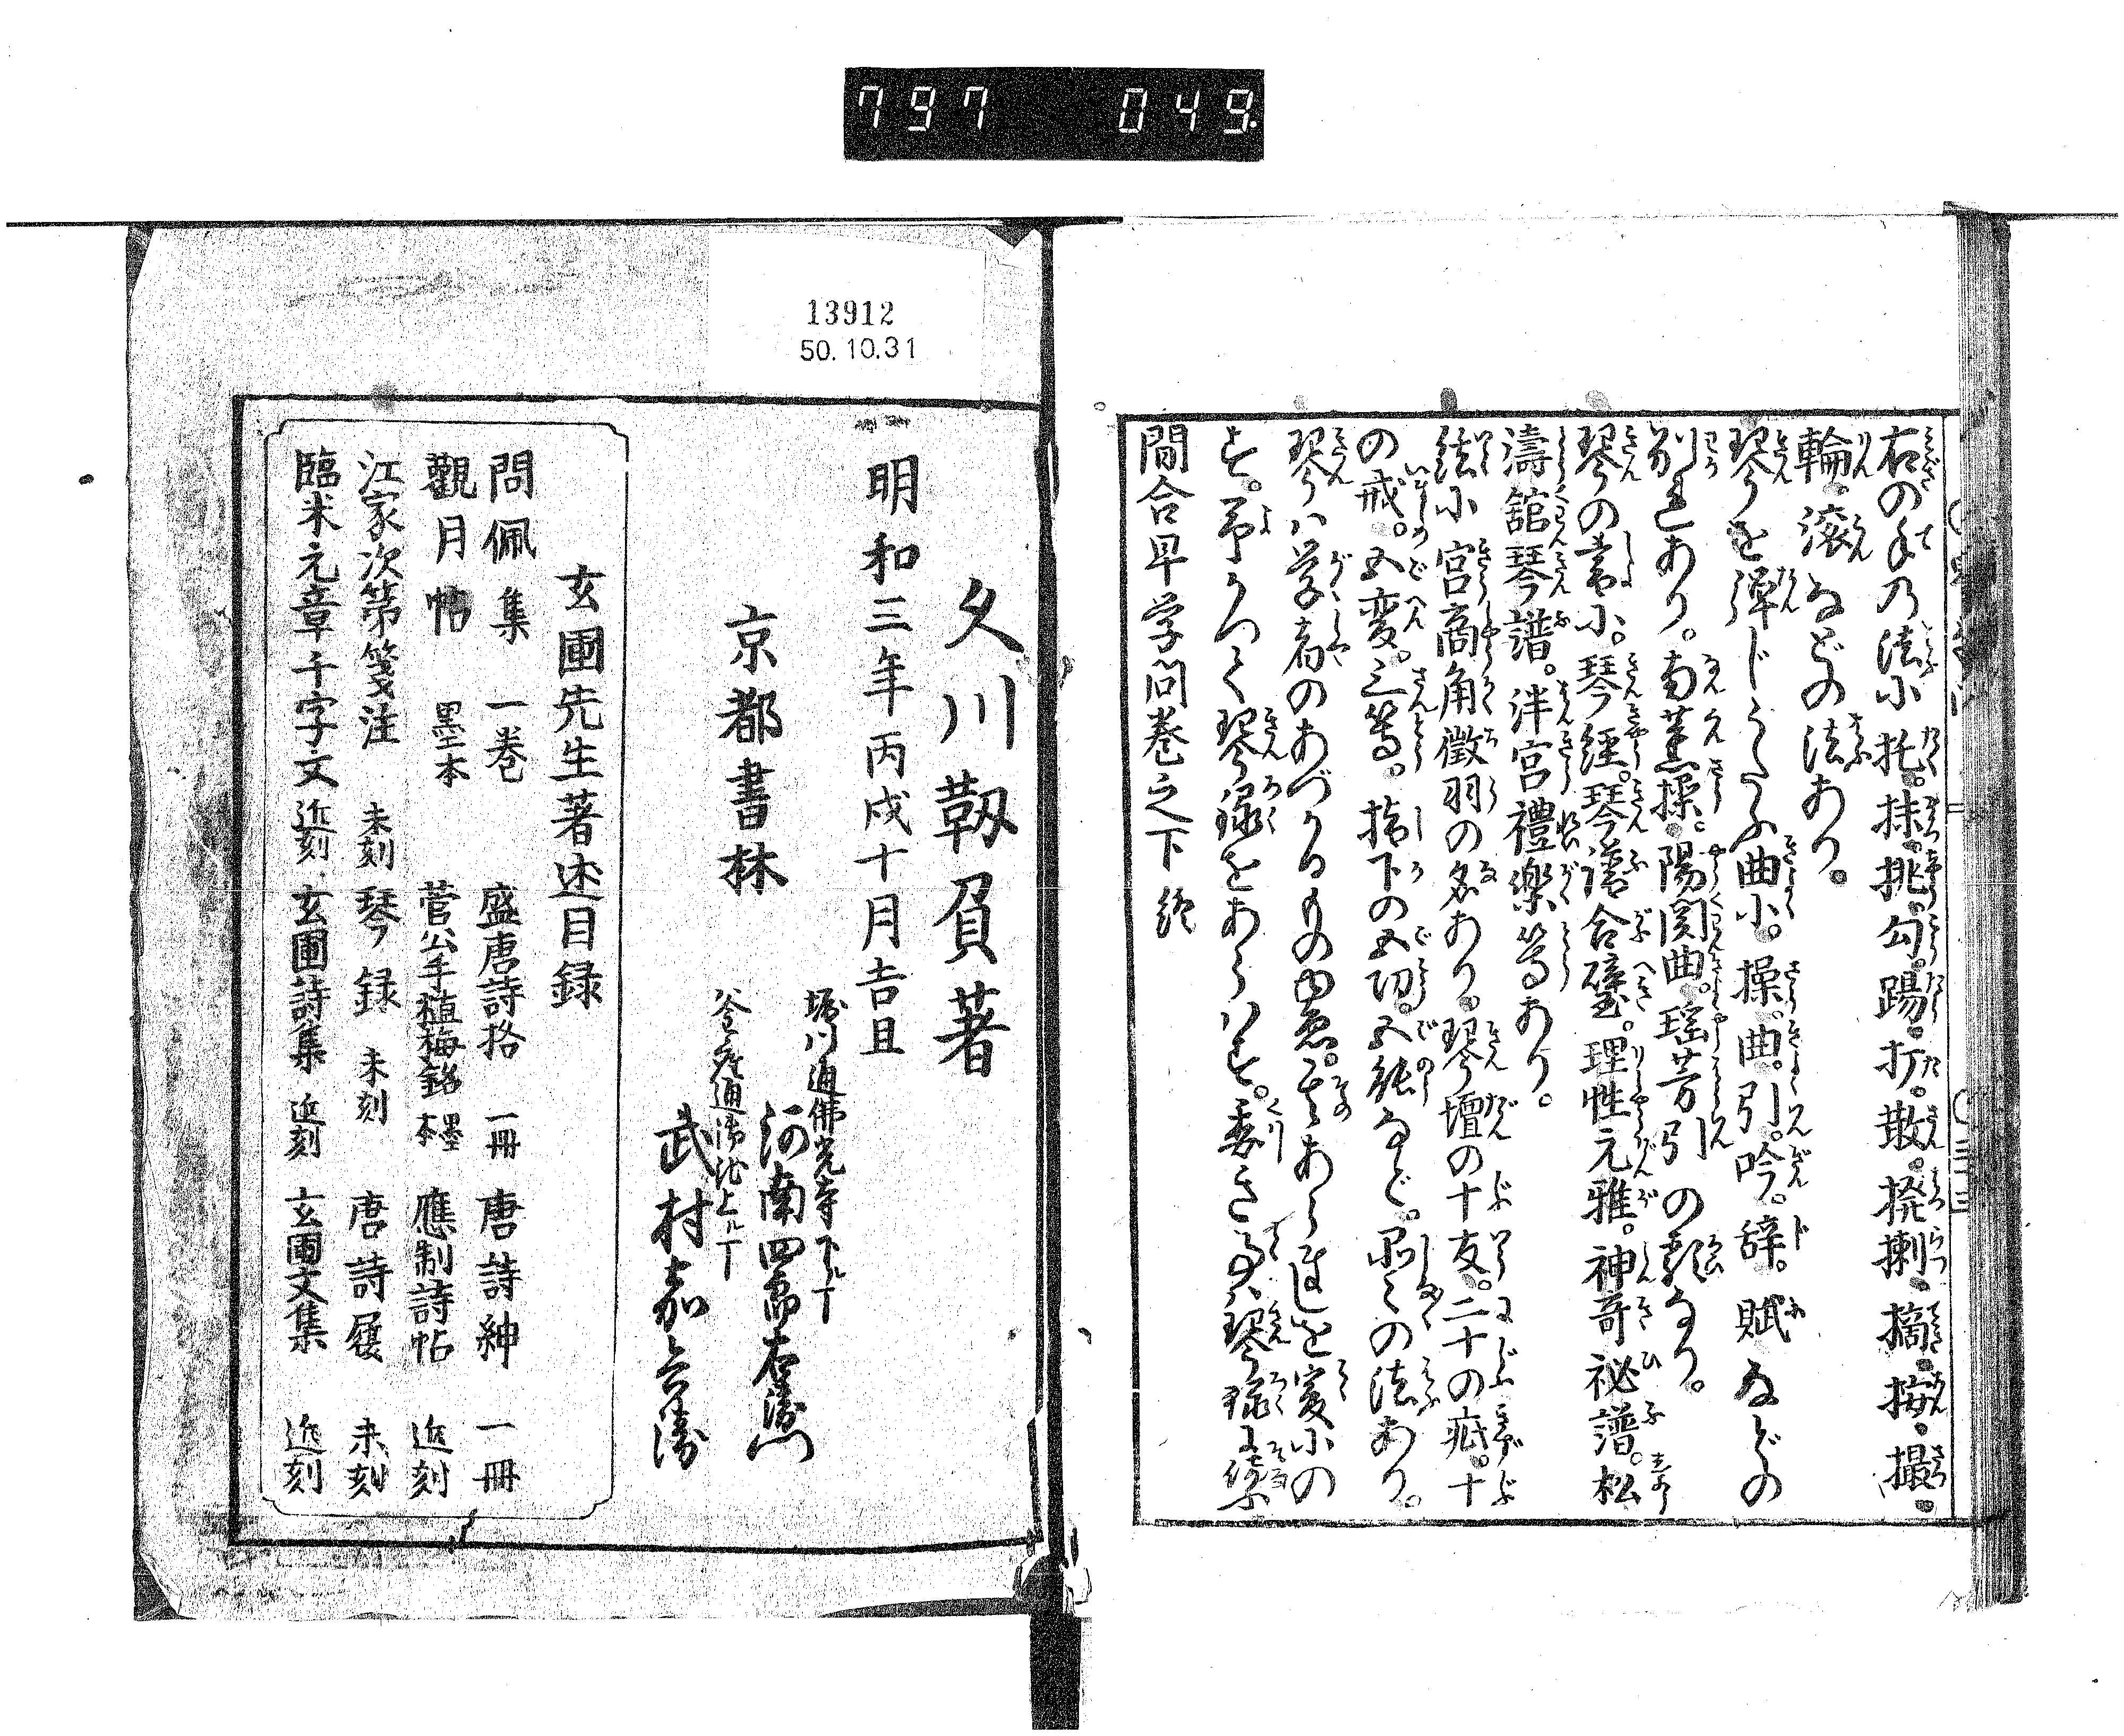 797 049
右の手の法に托。抹。挑。勾。踢。打。散。撥。擽。摘。按。撮。
輪。滚などの法あり。
琴を弾じうたふ曲に。操。曲。引。吟。辞。賦などの
別れあり。南薫操。陽関曲。瑶芳引の類なり。
琴の書に。琴經。琴譜合璧。理性元雅。神奇祕譜。松
濤舘琴譜。泮宮禮樂等あり。
絃に宮商角徴羽の名あり。琴壇の十友。二十の疵。十
の戒。五変。三等。指下の五功。五能など。品々の法あり。
琴ハ学者のあづかるもの也。其あらましを爰にの
す。予かつて琴録をあらハす。委き事ハ琴録に
間合早学問巻之下終
13912
50.10.31
久川靱負著
明和三年丙戌十月吉旦
京都書林
堀川通佛光寺下ル丁
河南四郎右衛門
釜座通御池上ル丁
武村嘉兵衛
玄圃先生著述目録
問佩集 一巻 盛唐詩格 一冊 唐詩紳 一冊
觀月帖 墨本 菅公手植梅銘 墨本 應制詩帖 近刻
江家次第箋注 未刻 琴録 未刻 唐詩屐 未刻
臨米元章千字文 近刻 玄圃詩集 近刻 玄圃文集 近刻